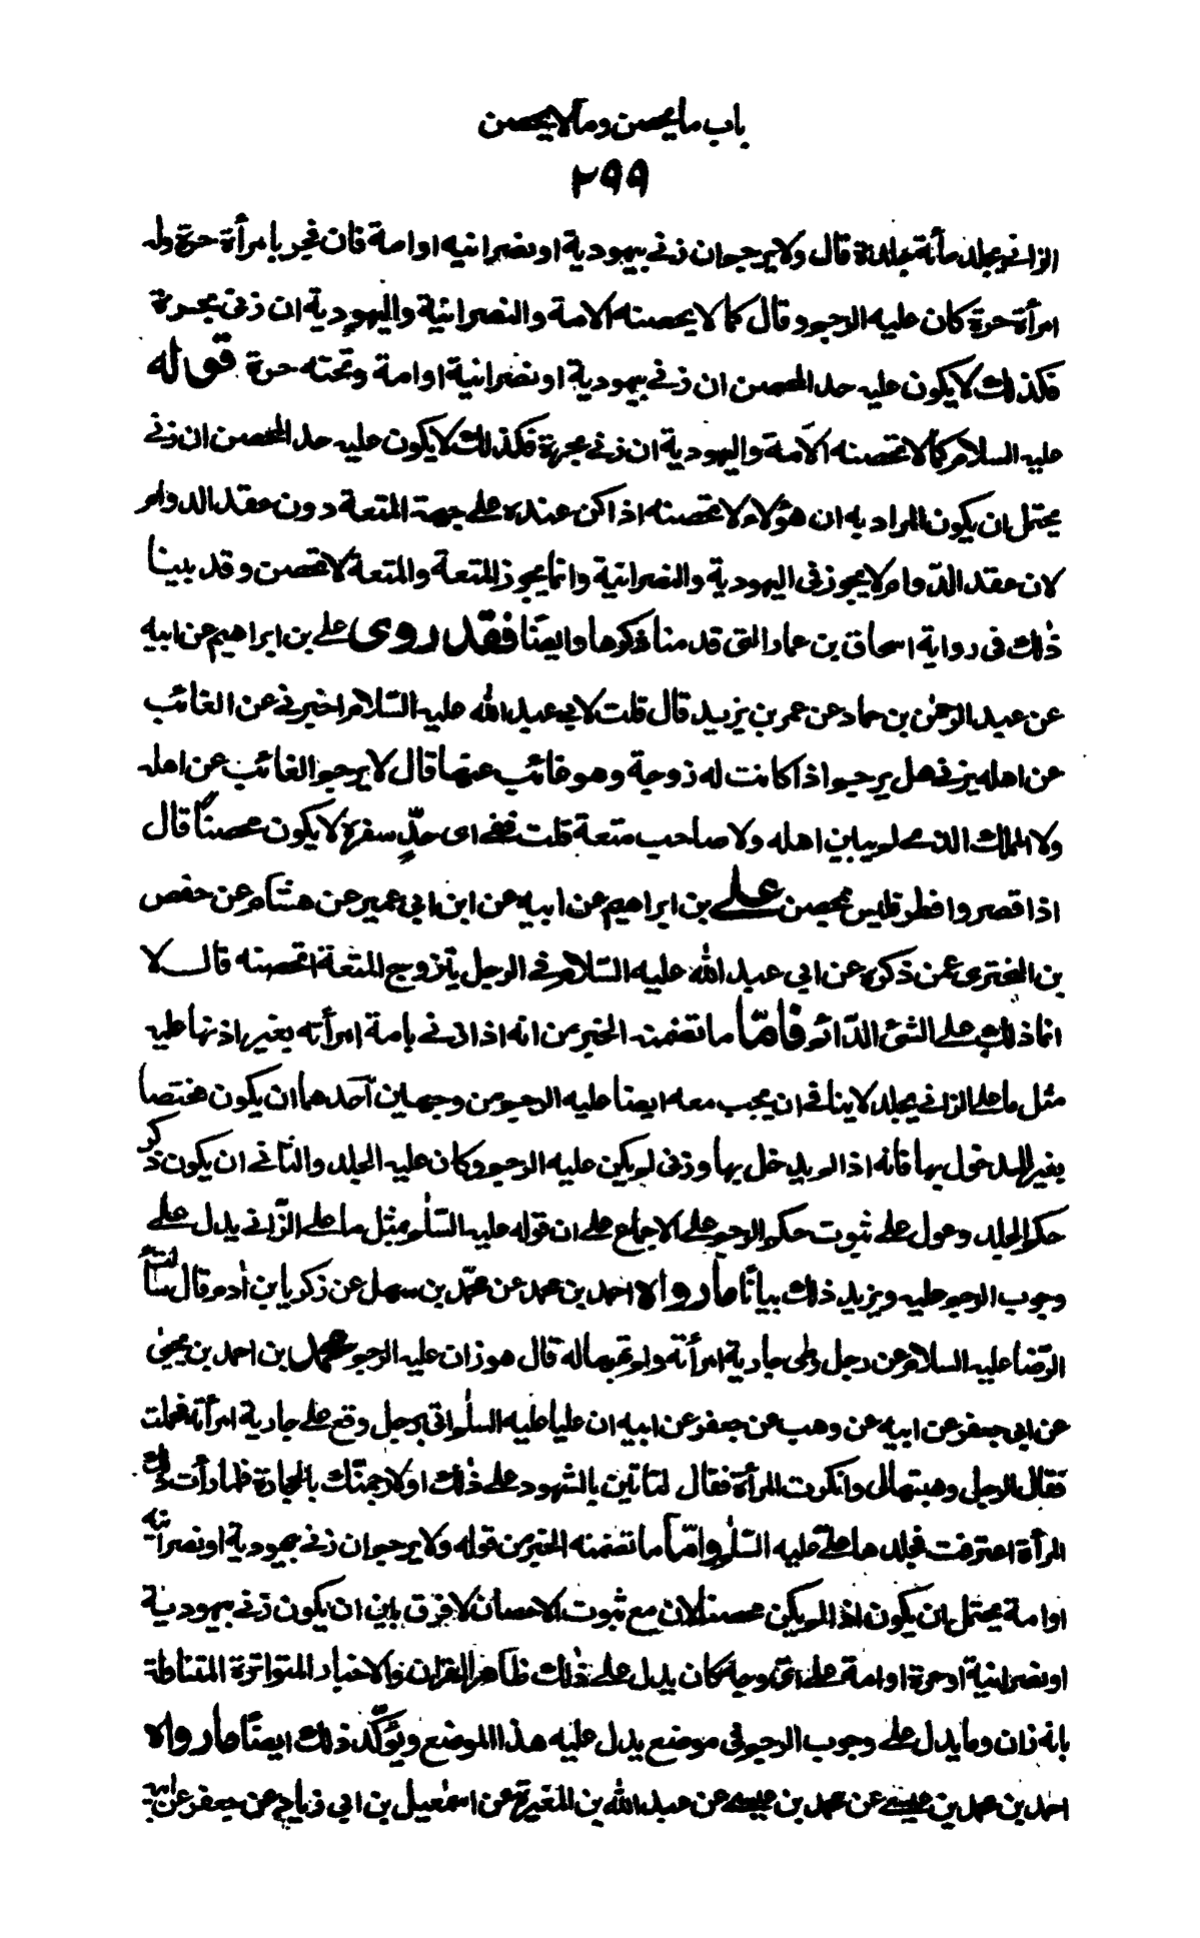 باب ما يحصن وما لا يحصن
٢٩٩
الزانى يجلد مأئة جلدة قال ولا يرجم ان زنى بيهودية او نصرانيه او امة فان فجر بامرأة حرة وله
امرأة حرة كان عليه الرجم وقال كما لا يحصنه الامة والنصرانية واليهودية ان زنى بحرة
فكذلك لا يكون عليه حد المحصن ان زنى بيهودية او نصرانية او امة وتحته حرة قوله
عليه السلام كما لا تحصنه الامة واليهودية ان زنى بحرة فكذلك لا يكون عليه حد المحصن ان زنى
يحتمل ان يكون المراد به ان هؤلاء لا تحصنه اذا كن عنده على جهة المتعة دون عقد الدوام
لان عقد الدوام لا يجوز فى اليهودية والنصرانية وانما يجوز المتعة والمتعة لا تحصن وقد بينا
ذلك فى رواية اسحاق بن عمار التى قدمنا ذكرها وايضًا فقد روى على بن ابراهيم عن ابيه
عن عبد الرحمن بن حماد عن عمر بن يزيد قال قلت لابى عبد الله عليه السّلام اخبرنى عن الغائب
عن اهله يزنى هل يرجم اذا كانت له زوجة وهو غائب عنها قال لا يرجم الغائب عن اهله
ولا المملك الذى لم يبن باهله ولا صاحب متعة قلت ففى اى حدّ سفره لا يكون محصنًا قال
اذا قصر وافطر فليس بمحصن على بن ابراهيم عن ابيه عن ابن ابى عمير عن هشام عن حفص
بن البخترى عمن ذكره عن ابى عبد الله عليه السّلام فى الرجل يتزوج المتعة اتحصنه قال لا
انما ذلك على الشئ الدّائم فامّا ما تضمنه الخبر من انه اذا زنى بامة امرأته بغير اذنها عليه
مثل ما على الزانى يجلد لا ينافى ان يجب معه ايضا عليه الرجم من وجهين احدهما ان يكون مختصا
بغير المدخول بها فانه اذا لم يدخل بها وزنى لم يكن عليه الرجم وكان عليه الجلد والثانى ان يكون ذكر
حكم الجلد وعول على ثبوت حكم الرجم على الاجماع على ان قوله عليه السّلم مثل ما على الزّانى يدل على
وجوب الرجم عليه ويزيد ذلك بيانًا ما رواه احمد بن محمد عن محمّد بن سهل عن زكريا بن ادم قال سألت
الرّضا عليه السلام عن رجل وطى جارية امرأته ولم تهبها له قال هو زان عليه الرجم محمد بن احمد بن يحيى
عن ابى جعفر عن ابيه عن وهب عن جعفر عن ابيه ان عليا عليه السلم اتى برجل وقع على جارية امرأته فحملت
فقال الرجل وهبتها لى وانكرت المرأة فقال لتاتين بالشهود على ذلك او لارجمنّك بالحجارة فلما رأت ذلك
المرأة اعترفت فجلدها على عليه السّلم وامّا ما تضمنه الخبر من قوله ولا يرجم ان زنى بيهودية او نصرانية
او امة يحتمل ان يكون اذا لم يكن محصنا لان مع ثبوت الاحصان لا فرق بين ان يكون زنى بيهودية
او نصرانية او حرة او امة على اى وجه كان يدل على ذلك ظاهر القران والاخبار المتواترة المتناولة
بانه زان وما يدل على وجوب الرجم فى موضع يدل عليه هذا الموضع ويؤكّد ذلك ايضًا ما رواه
احمد بن محمد بن عيسى عن محمد بن عيسى عن عبد الله بن المغيرة عن اسمعيل بن ابى زياد عن جعفر عن ابيه